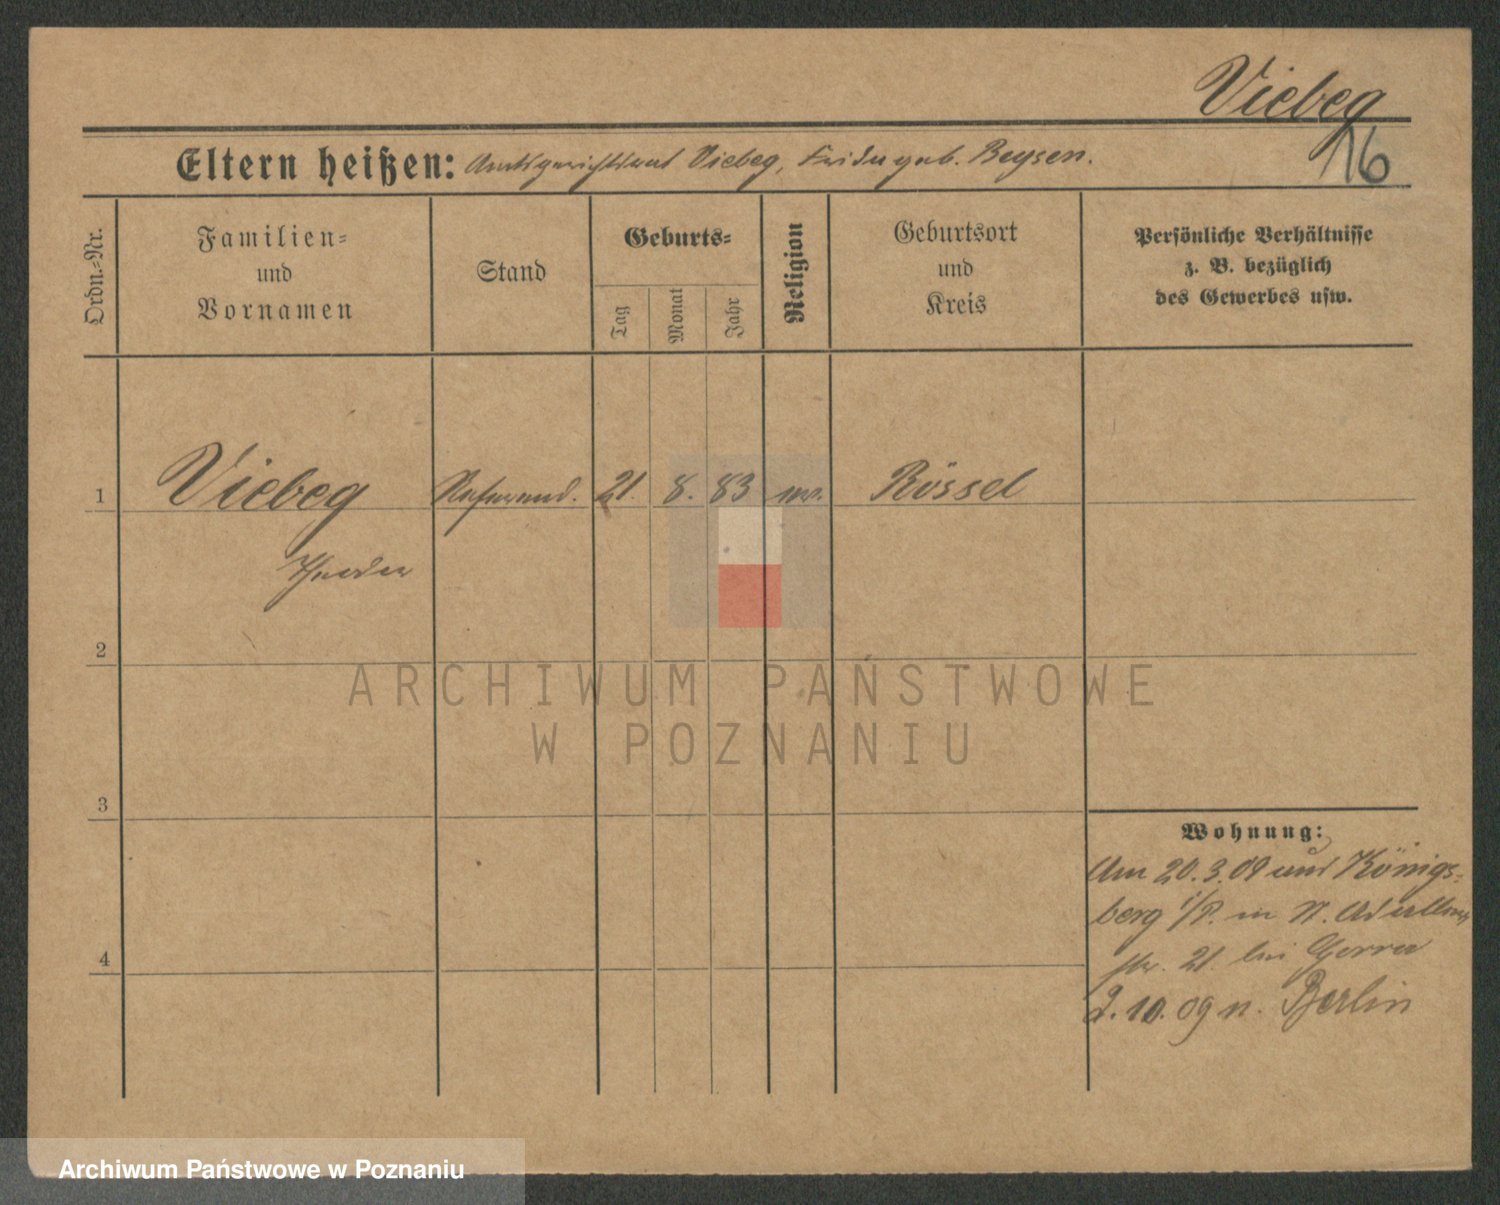 Viebeg
16
Eltern heißen: Amtsgerichtsrat Viebeg, Frida geb. Beysen.
Ordn.-Nr.
Familien-
und
Vornamen
Stand
Geburts-
Tag
Monat
Jahr
Religion
Geburtsort
und
Kreis
Persönliche Verhältnisse
z. B. bezüglich
des Gewerbes usw.
1 Viebeg Referend. 21. 8. 83 Rössel
2
3
4
Wohnung:
Am 20.3.09 Königs-
berg i/P. in N.
str. 21. bei
2.10.09 n. Berlin
ARCHIWUM PAŃSTWOWE
W POZNANIU
Archiwum Państwowe w Poznaniu